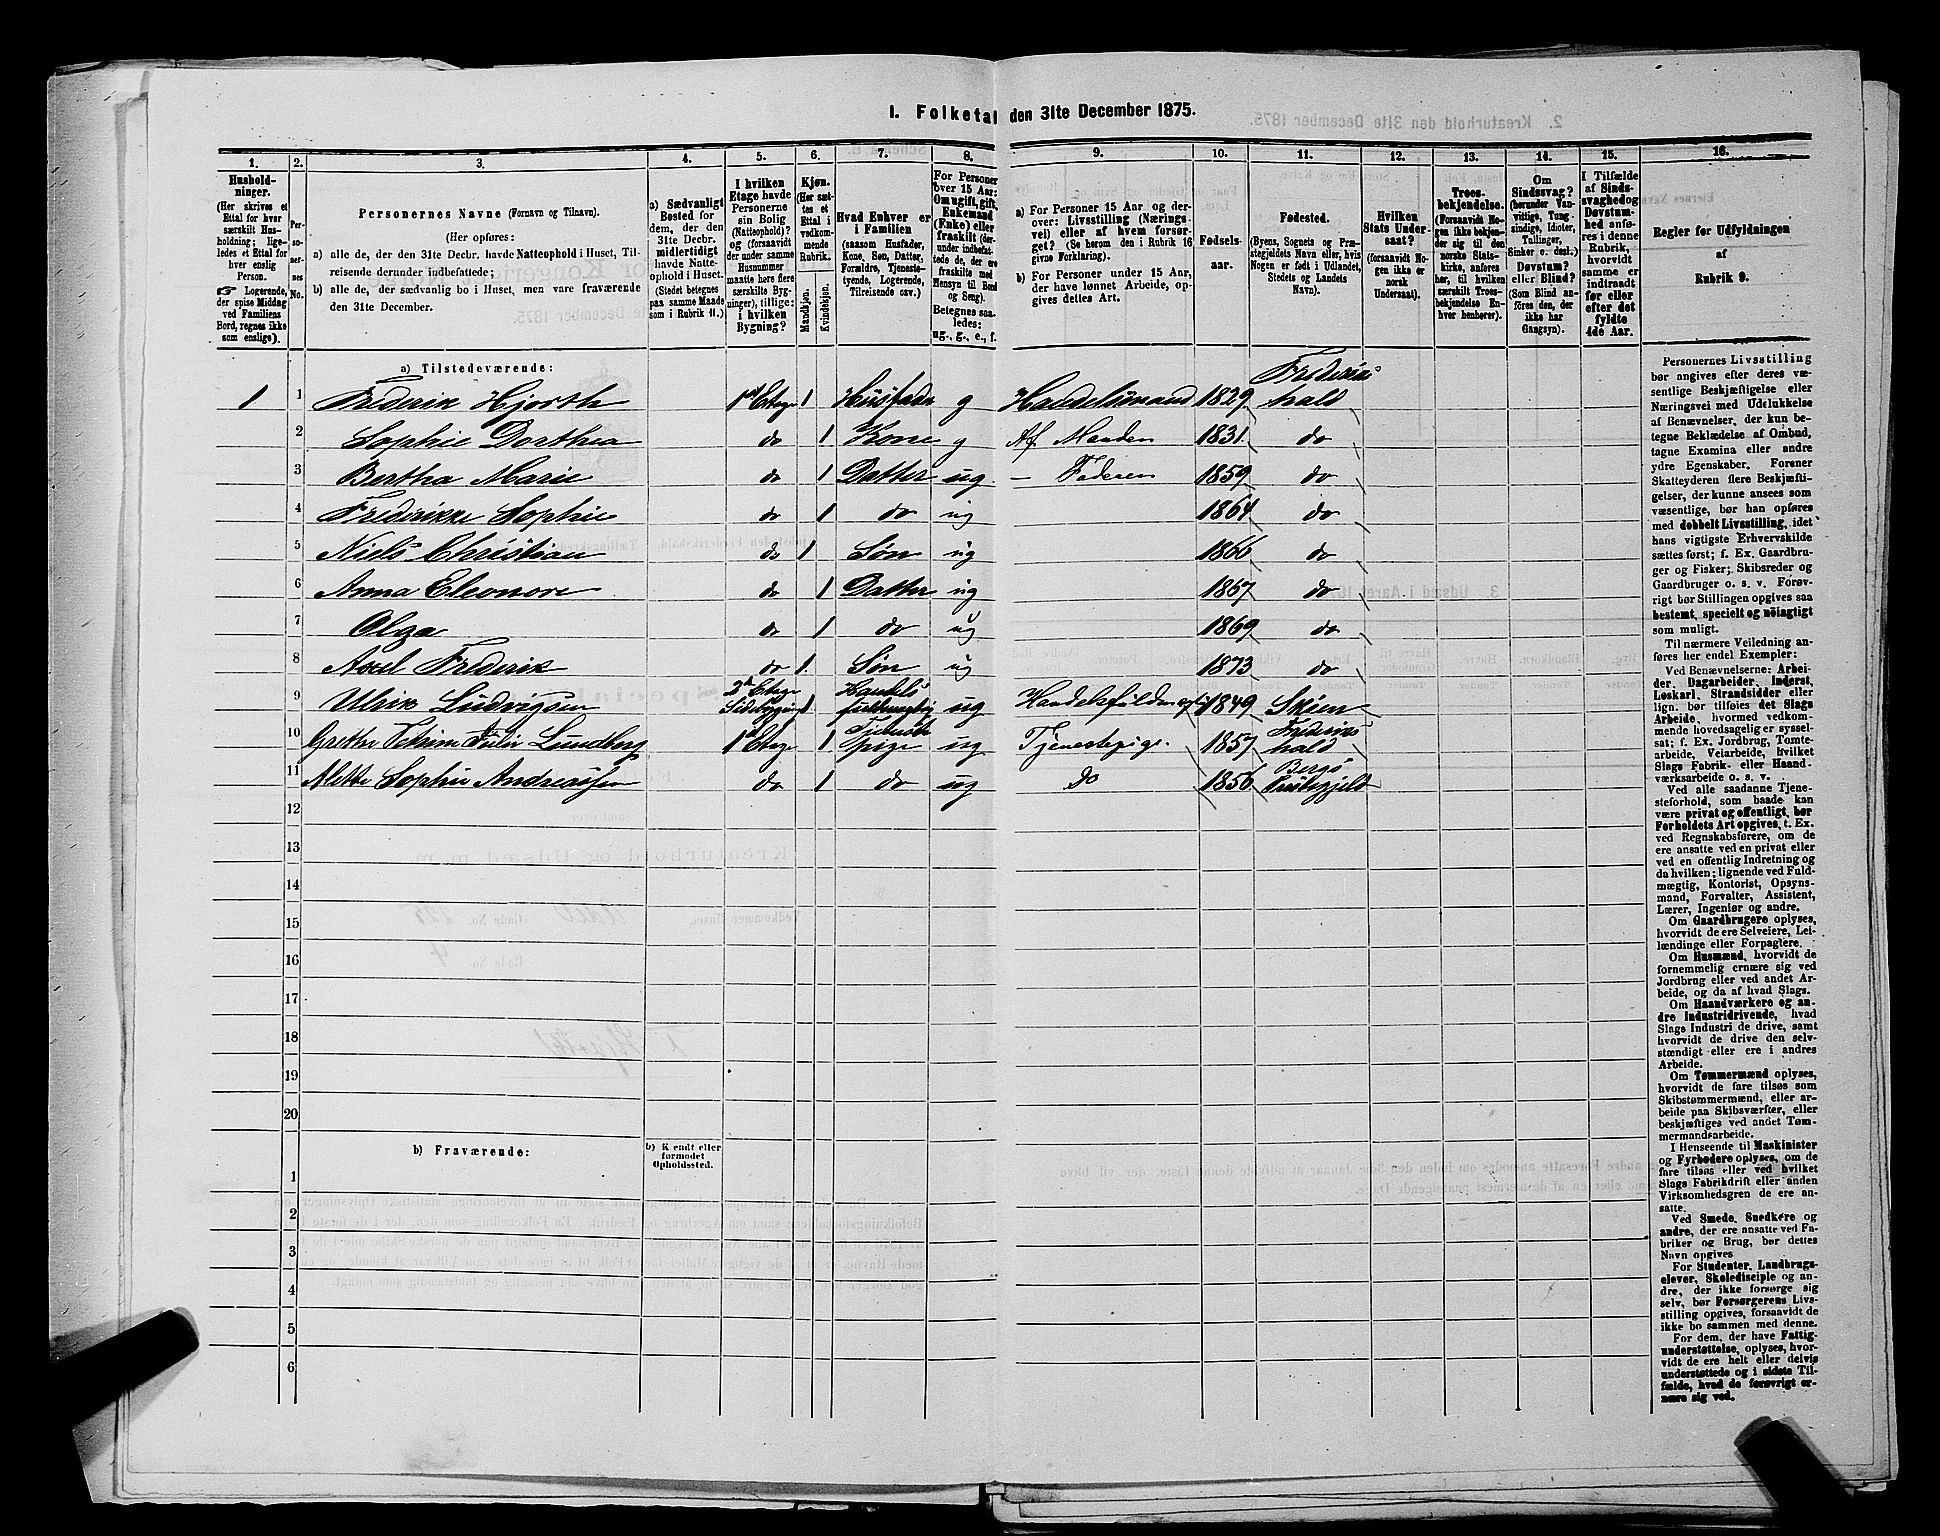 1. Folketal den 31te December 1875.
1. 2. 3. 4. 5. 6. 7. 8. 9. 10. 11. 12. 13. 14. 15. 16.
Hushold-
ninger.
(Her skrives et
Ettal for hver
særskilt Hus-
holdning; lige-
ledes et Ettal for
hver enslig
Person.
☞ Logerende,
der spise Middag
ved Familiens
Bord, regnes ikke
som enslige).
Per-
so-
ner-
nes
No.
Personernes Navne (Fornavn og Tilnavn).
(Her opføres:
a) alle de, der den 31te Decbr. havde Natteophold i Huset, Til-
reisende derunder indbefattede;
b) alle de, der sædvanlig bo i Huset, men vare fraværende
den 31te December.
a) Sædvanligt
Bosted for
dem, der den
31te Decbr.
midlertidigt
havde Natte-
ophold i Huset.
(Stedet betegnes
paa samme Maade
som i Rubrik 11.)
I hvilken
Etage havde
Personerne
sin Bolig
(Natteophold)?
og (forsaavidt
der under samme
Husnummer
maatte høre flere
særskilte Byg-
ninger), tillige:
i hvilken
Bygning?
Kjøn.
(Her sæt-
tes et
Ettal i
vedkom-
mende
Rubrik.
Mandkjøn.
Kvindekjøn.
Hvad Enhver er
i Familien
(saasom Husfader,
Kone, Søn, Datter,
Forældre, Tjeneste-
tyende, Logerende,
Tilreisende osv.)
For Personer
over 15 Aar:
Om ugift, gift,
Enkemand
(Enke) eller
fraskilt (der-
under indbefat-
tede de, der ere
fraskilte med
Hensyn til Bord
og Seng).
Betegnes saa-
ledes:
ug., g., e., f.
a) For Personer 15 Aar og der-
over: Livsstilling (Nærings-
vei) eller af hvem forsør-
get? (Se herom den i Rubrik 16
givne Forklaring).
b) For Personer under 15 Aar,
der have lønnet Arbeide, op-
gives dettes Art.
Fødsels-
aar.
Fødested.
(Byens, Sognets og Præ-
stegjeldets Navn eller, hvis
Nogen er født i Udlandet,
Stedets og Landets
Navn).
Hvilken
Stats Under-
saat?
(forsaavidt No-
gen ikke er
norsk
Undersaat).
Troes-
bekjendelse.
(Forsaavidt No-
gen ikke bekjen-
der sig til den
norske Stats-
kirke, anføres
her, til hvilken
særskilt Troes-
bekjendelse En-
hver henhører).
Om
Sindssvag?
(herunder Van-
vittige, Tung-
sindige, Idioter,
Tullinger,
Sinker o. desl.).
Døvstum?
eller Blind?
(Som Blind an-
føres den, der
ikke har
Gangsyn).
I Tilfælde
af Sinds-
svaghed og
Døvstum-
hed anfø-
res i denne
Rubrik,
hvorvidt
samme er
indtraadt
før eller
efter det
fyldte
4de Aar.
Regler for Udfyldningen
af
Rubrik 9.
a) Tilstedeværende:
1 1 Frederik Hjorth 1ste Etage 1 Husfader g Handelsmand 1829 Frederiks
hald
2 Sophie Dorthea do 1 Kone g Af Manden 1831 do
3 Bertha Marie do 1 Datter ug - Faderen 1859 do
4 Frederikke Sophie do 1 do ug 1864 do
5 Niels Christian do 1 Søn ug 1866 do
6 Anna Eleonore do 1 Datter ug 1867 do
7 Olga do 1 do ug 1869 do
8 Axel Frederik do 1 Søn ug 1873 do
9 Ulrik Ludvigsen 2den Etage Sidebygning 1 Handels fuldmægtig ug Handelsfuldmægtig 1849 Skien
10 Grethe Julie Lundberg 1ste Etage 1 Tjeneste pige ug Tjenestepige 1857 Frederiks hald
11 Mette Sophie Andreassen do 1 do ug do 1856 Bergs Præstegjeld
12
13
14
15
16
17
18
19
20
b) Fraværende: b) Kjendt eller
formodet
Opholdssted.
1
2
3
4
5
6
Personernes Livsstilling
bør angives efter deres væ-
sentlige Beskjæftigelse eller
Næringsvei med Udelukkelse
af Benævnelser, der kun be-
tegne Beklædelse af Ombud,
tagne Examina eller andre
ydre Egenskaber. Forener
Skatteyderen flere Beskjæfti-
gelser, der kunne ansees som
væsentlige, bør han opføres
med dobbelt Livsstilling, idet
hans vigtigste Erhvervskilde
sættes først; f. Ex. Gaardbru-
ger og Fisker; Skibsreder og
Gaardbruger o. s. v. Forøv-
rigt bør Stillingen opgives saa
bestemt, specielt og nöiagtigt
som muligt.
Til nærmere Veiledning an-
føres her endel Exempler:
Ved Benævnelserne: Arbei-
der, Dagarbeider, Inderst,
Løskarl, Strandsidder eller
lign. bør tilføies det Slags
Arbeide, hvormed vedkom-
mende hovedsagelig er syssel-
sat; f. Ex. Jordbrug, Tomte-
arbeide, Veiarbeide, hvilket
Slags Fabrik- eller Haand-
værksarbeide o. s. v.
Ved alle saadanne Tjene-
steforhold, som baade kan
være privat og offentligt, bør
Forholdets Art opgives, t. Ex.
ved Regnskabsførere, om de
ere ansatte ved en privat eller
ved en offentlig Indretning og
da hvilken; lignende ved Fuld-
mægtig, Kontorist, Opsyns-
mand, Forvalter, Assistent,
Lærer, Ingeniør og andre.
Om Gaardbrugere oplyses,
hvorvidt de ere Selveiere, Lei-
lændinge eller Forpagtere.
Om Husmænd, hvorvidt de
fornemmelig ernære sig ved
Jordbrug eller ved andet Ar-
beide, og da af hvad Slags.
Om Haandværkere og an-
dre Industridrivende, hvad
Slags Industri de drive, samt
hvorvidt de drive den selv-
stændigt eller ere i andres
Arbeide.
Om Tømmermænd oplyses,
hvorvidt de fare tilsøs som
Skibstømmermænd, eller ar-
beide paa Skibsværfter, eller
beskjæftiges ved andet Tøm-
mermandsarbeide.
I Henseende til Maskinister
og Fyrbødere oplyses, om de
fare tilsøs eller ved hvilket
Slags Fabrikdrift eller anden
Virksomhedsgren de ere an-
satte.
Ved Smede, Snedkere og
andre, der ere ansatte ved Fa-
briker og Brug, bør dettes
Navn opgives
For Studenter, Landbrugs-
elever, Skoledisciple og an-
dre, der ikke forsørge sig
selv, bør Forsørgerens Livs-
stilling opgives, forsaavidt de
ikke bo sammen med denne.
For dem, der have Fattig-
understøttelse, oplyses, hvor-
vidt de ere helt eller delvis
understøttede og i sidste Til-
fælde, hvad de forøvrigt er-
nære sig ved.